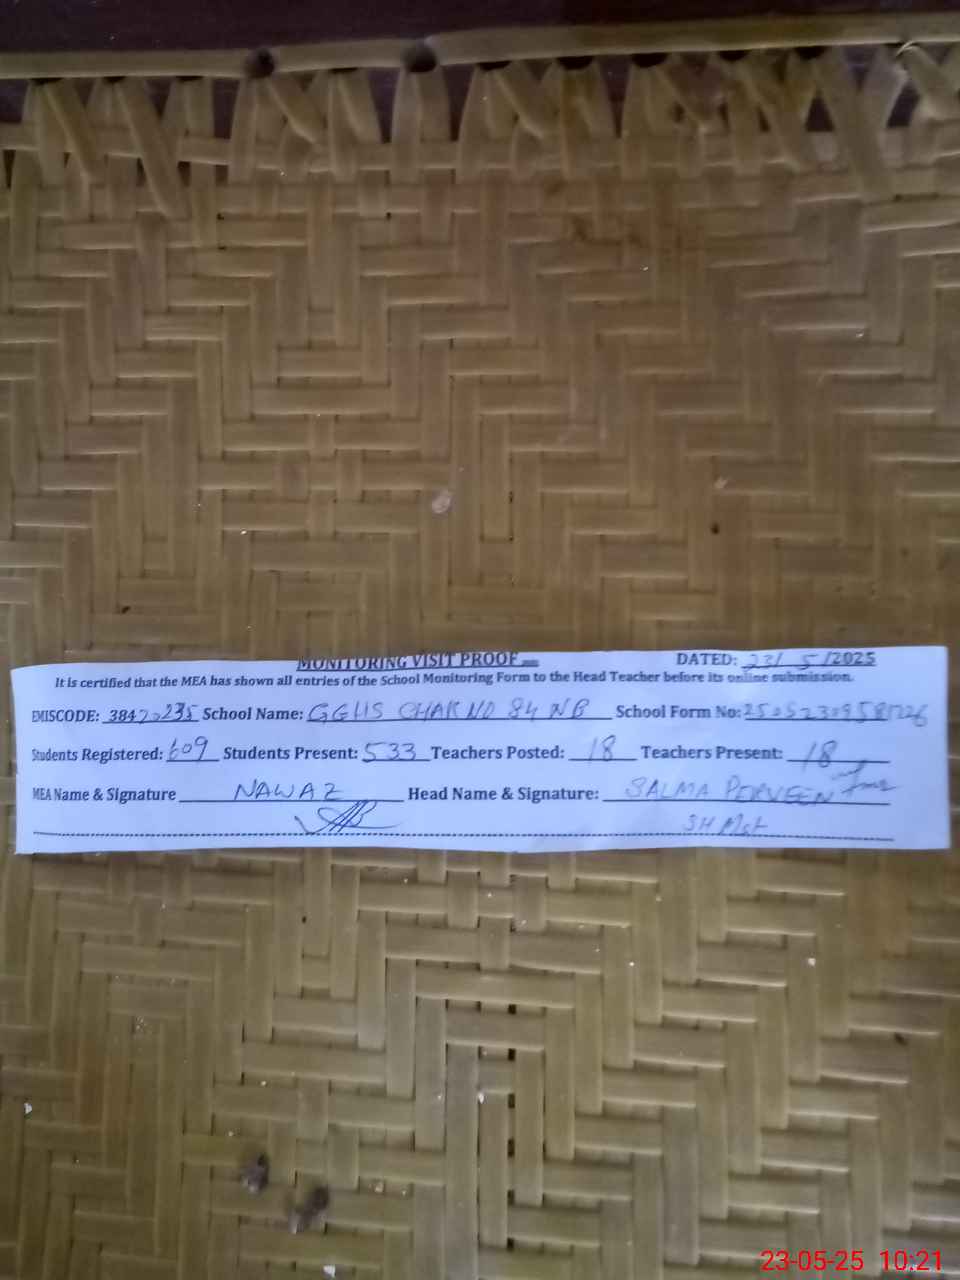 MONITORING VISIT PROOF DATED: 23/ 5 /2025
It is certified that the MEA has shown all entries of the School Monitoring Form to the Head Teacher before its online submission.
EMISCODE: 38420235 School Name: GGHS CHAK NO 84 NB School Form No:
Students Registered: 609 Students Present: 533 Teachers Posted: 18 Teachers Present: 18
MEA Name & Signature NAWAZ Head Name & Signature: SALMA PERVEEN
23-05-25 10:21